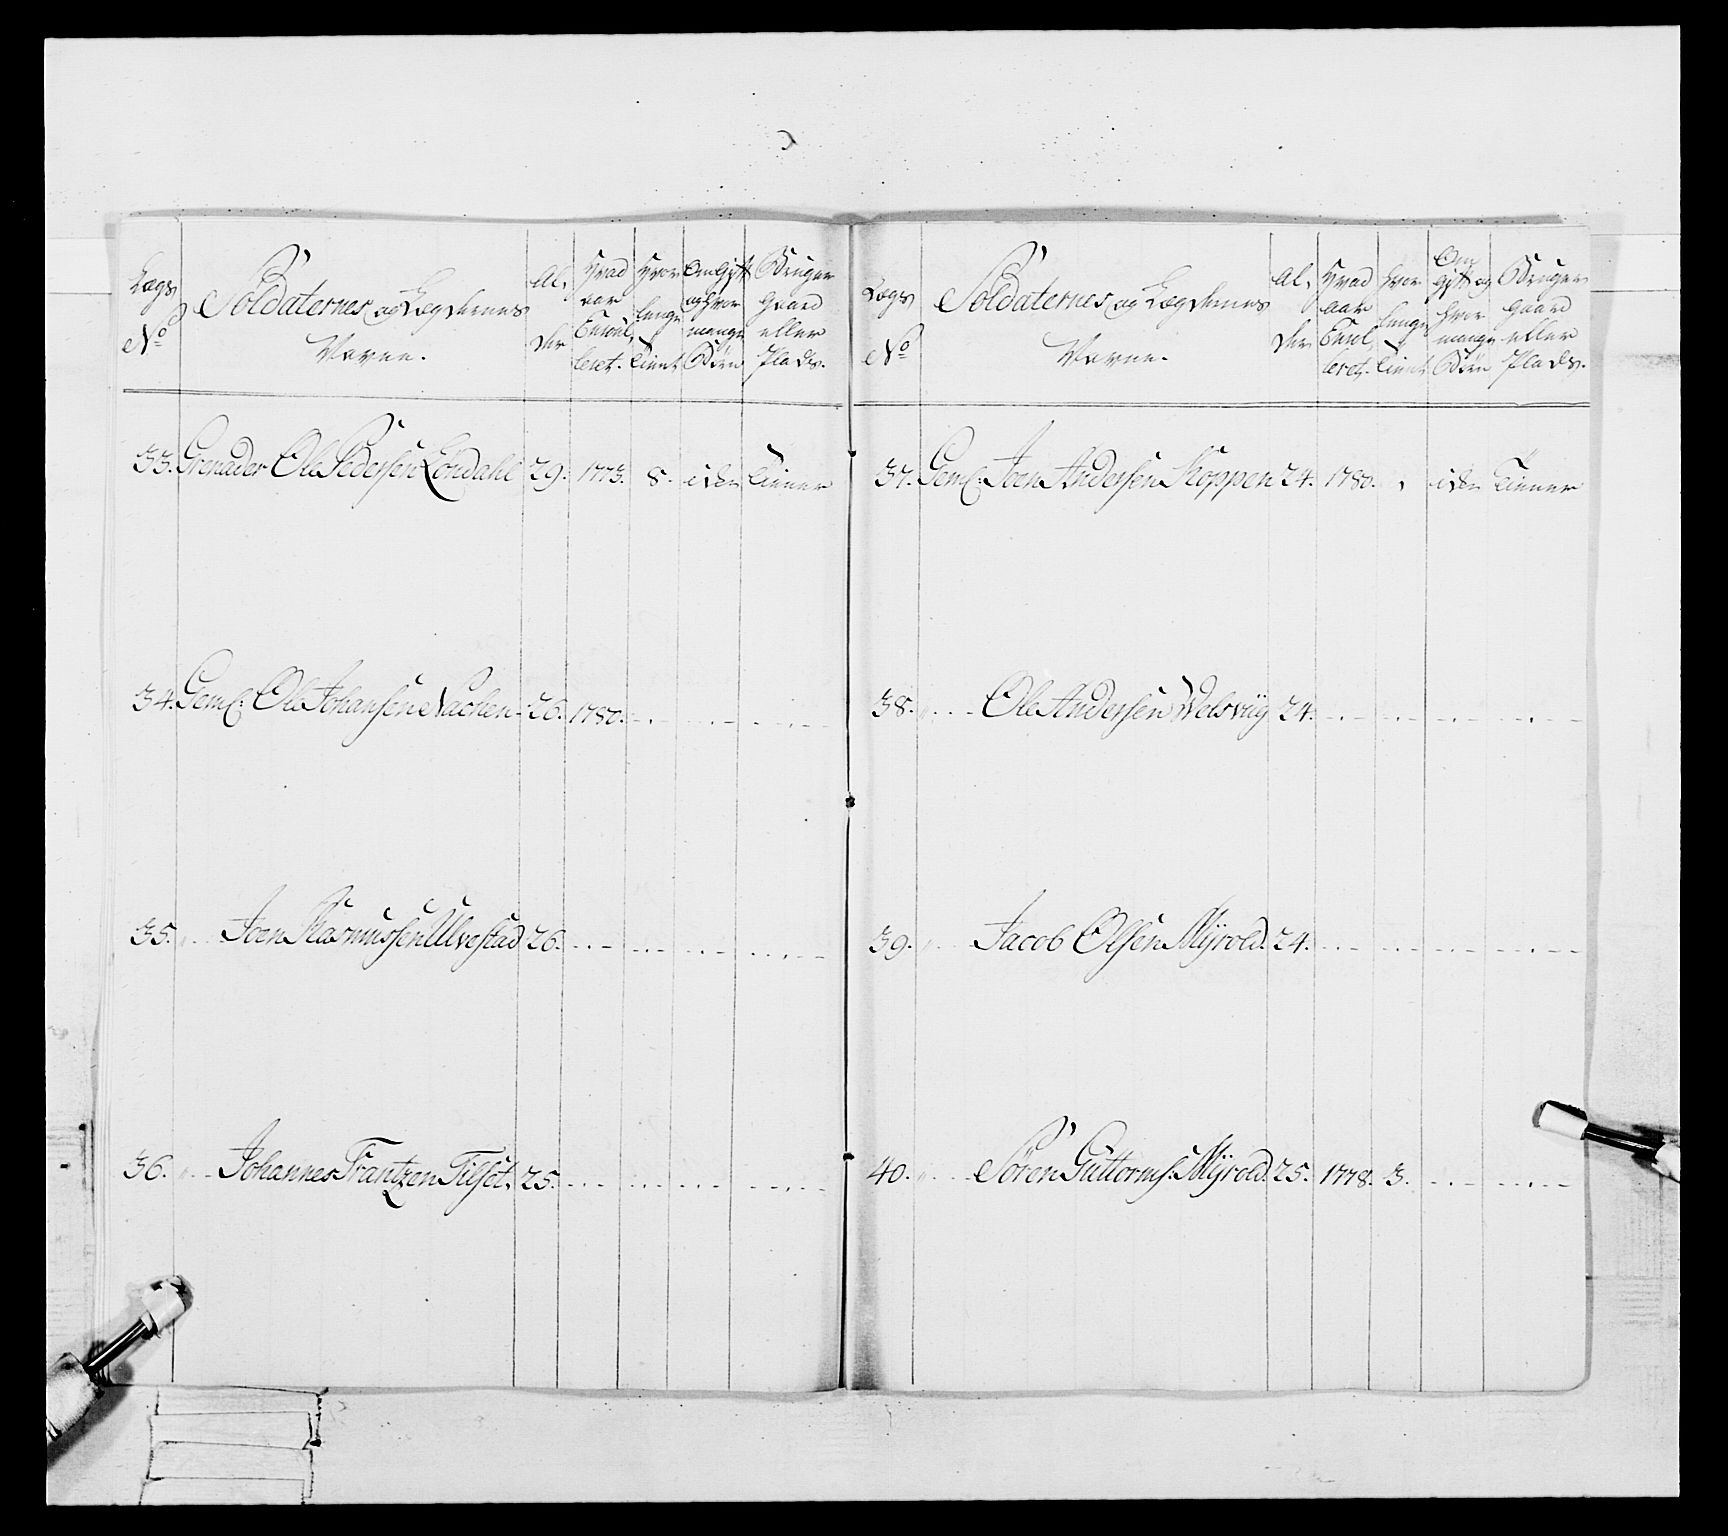 Lægs No
Soldaternes og Lægdernes Navne.
Al, der
Hvad aar Enroul, leret.
Hvor lenge tient
Om Gift og Hvor mange Børn
Bruger Gaard eller Plads.
33. Grenader Ole Pedersen Londahl 29. 1773. 8. iche Tiener
34. Geml: Ole Johansen Nachen 26. 1780. - . - . -
35. " - - Joen Rasmussen Ulvestad 26. - . - . -
36. " - - Johannes Frantzen Tilset. 25. - . - . -
Lægs No
Soldaternes og Lægdernes Navne.
Al, der
Hvad aar Enrol, leret.
Hvor lenge tient
Om Gift og Hvor mange Børn
Bruger Gaard eller Plads.
37. Geml: Joen Andersen Koppen 24. 1780. , iche Tiener
38. " - - Ole Andersen Welsviig 24. - . - . -
39. " - - Jacob Olsen Myrold. 24. - . - . -
40. " - - Sören Guttorms. Myrold. 25. 1778. 3. - . - . -